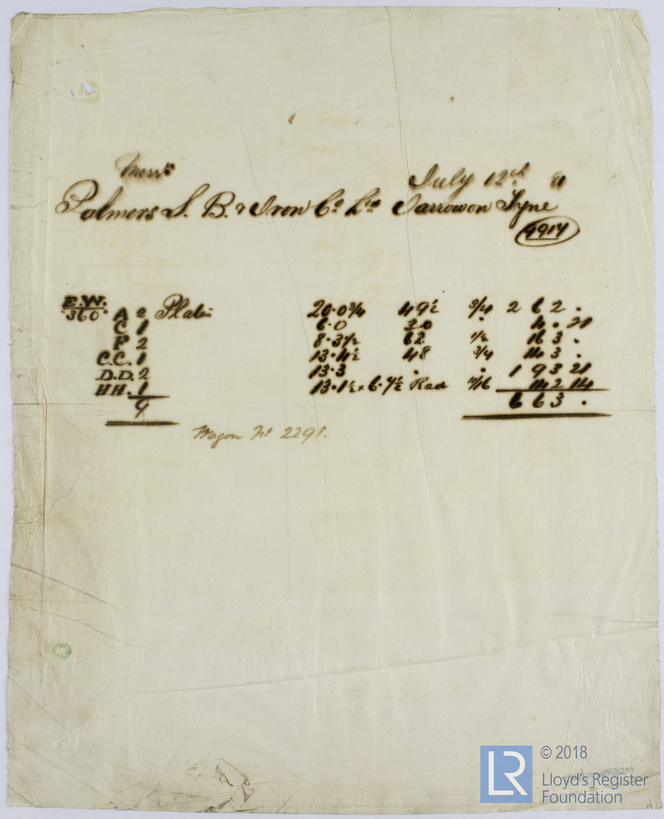 Messrs July 12th 81
Palmers S. B. & Iron Co. Ld. Jarrow on Tyne
4914
E.W.
360 A 2 Plates 20.0¾ 49½ ¾ 2 6 2 .
C 1 6.0 30 " 4 . 21
F 2 8.3½ 62 ½ 16 3 .
C.C. 1 13.4½ 48 ¾ 14 3 .
D.D. 2 13.3 " " 1 9 3 21
HH. 1 13.1½ x 6.7½ Rad 14 2 14
9 6 6 3 .
Wagon No 2291.
LR
© 2018
Lloyd's Register
Foundation